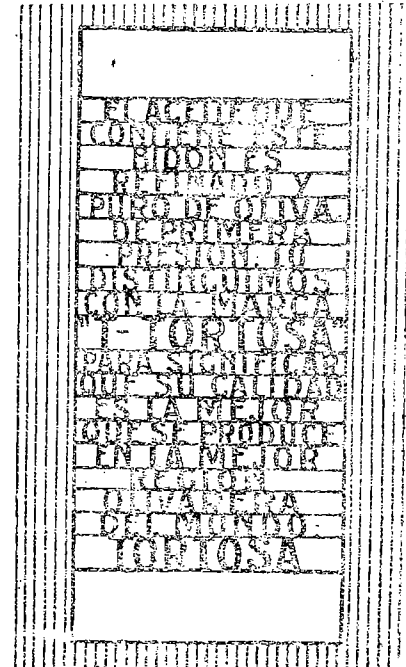 EL ACEITE QUE
CONTIENE ESTE
BIDON ES
REFINADO Y
PURO DE OLIVA
DE PRIMERA
PRESION. LO
DISTINGUIMOS
CON LA MARCA
"I-TORTOSA"
PARA SIGNIFICAR
QUE SU CALIDAD
ES LA MEJOR
QUE SE PRODUCE
EN LA MEJOR
REGION
OLIVARERA
DEL MUNDO.
TORTOSA